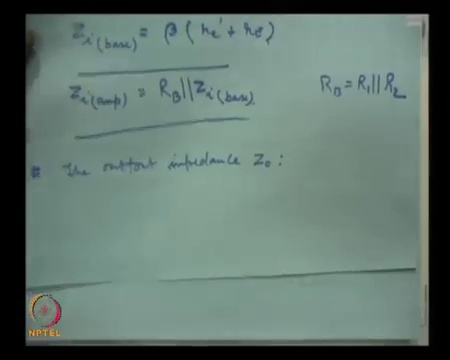 Zi(base) = β (re' + rE)
Zi(amp) = RB || Zi(base)
RB = R1 || R2
The output impedance Zo :
NPTEL